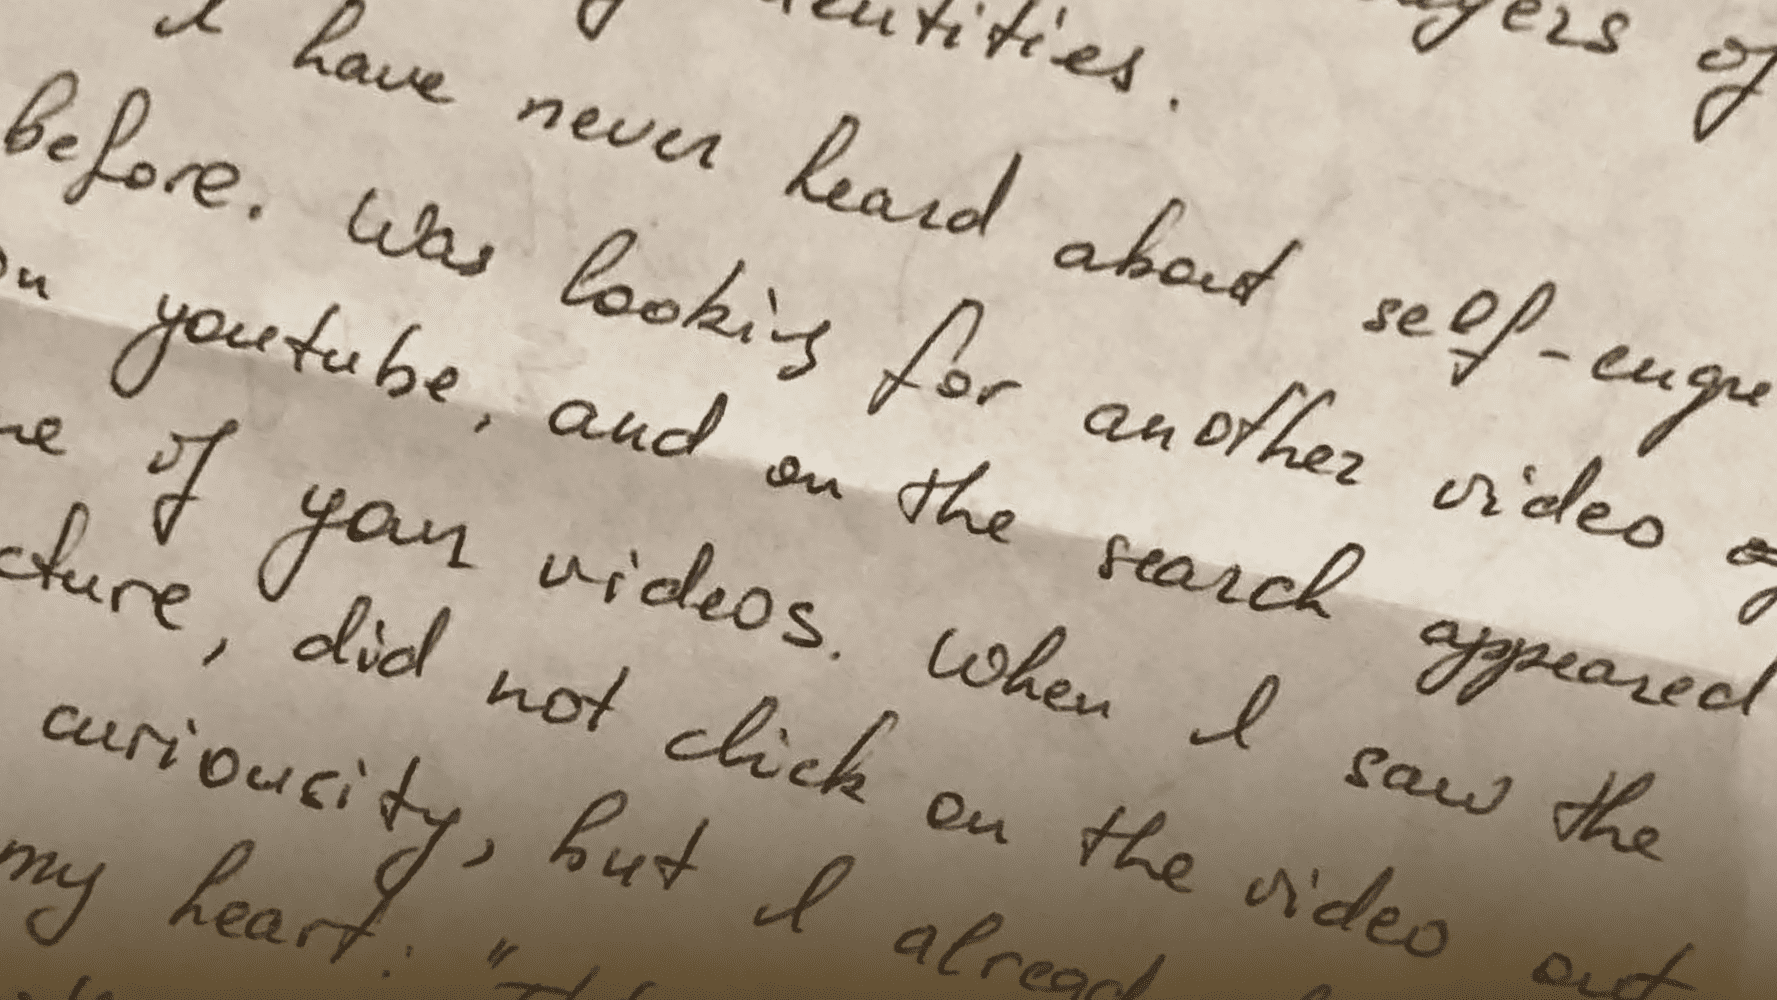 of
identities.
I have never heard about self-enqu
before. Was looking for another video
on youtube, and on the search appeared
of your videos. When I saw the
cture, did not click on the video out
curiousity, but I alread
my heart: "